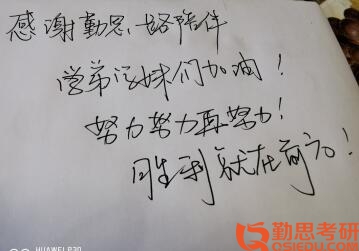 感谢勤思一路陪伴
学弟学妹们加油！
努力努力再努力！
胜利就在前方！
HUAWEI P30
勤思考研
QSIEDU.COM